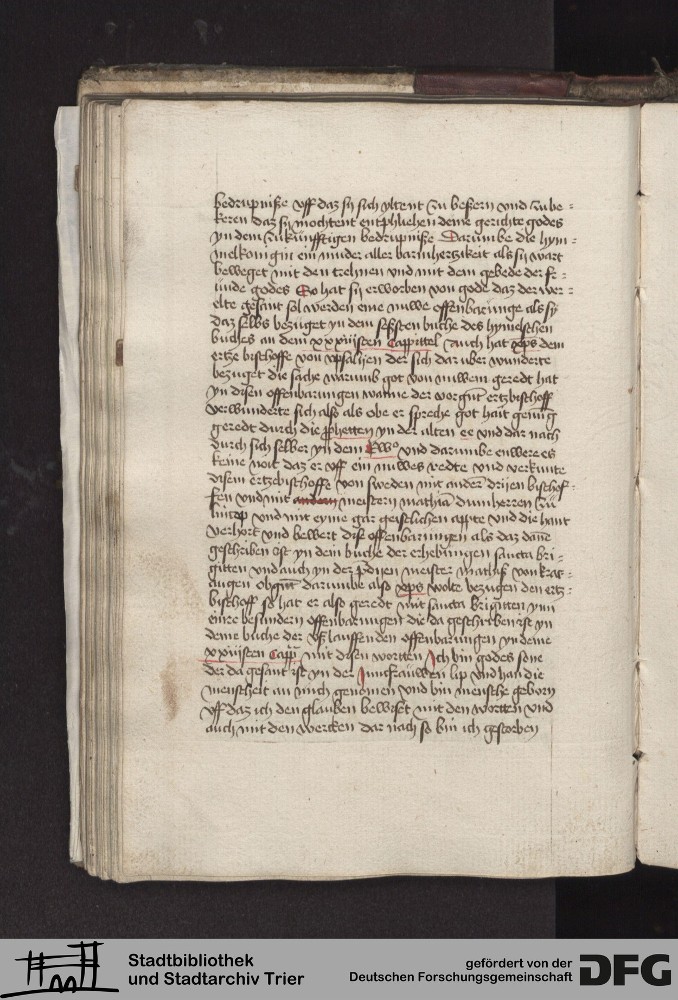 bedrupniße vff daz sy sich yltent zu beßern vnd zu be-
keren daz sy mochtent entphliehen deme gerichte godes
yn dem zukünfftigen bedrupniße Darumbe die hym-
melkonigin ein muder aller barmhertzikeit als sy wart
beweget mit den trehnen vnd mit dem gebede der fr-
unde godes So hat sy erworben von gode daz der wer-
elte gesant sol werden eine nuwe offenbarunge als sy
daz selbs bezuget yn dem sehsten buche des hymelschen
buches an dem xxxiiisten Cappittel Auch hat xps dem
ertze bischoffe von vpsalijen der sich dar vber wunderte
bezuget die sache warumb got von nuwem geredt hat
yn disen offenbarungen wanne der vorgnt ertzbischoff
verwunderte sich also als obe er spreche got hait genug
geredt durch die ppheten yn der alten ee vnd dar nach
durch sich selber yn dem Ewo vnd darumbe enwere es
keine noit daz er vff ein nuwes redte vnd verkunte
disem ertzebischoffe von sweden mit andern drijen bischof-
fen vnd mit andern meistern mathia dumherren zu
lincop vnd mit eyme gar geistlichen appte vnd die hant
verhort vnd bewert dise offenbarungen als daz dane
geschriben ist yn dem buche der erhebungen sancta bri-
gitten vnd auch yn der
augen obgnt darumbe also xps wolte bezugen den ertz-
bischoff so hat er also geredt mit sancta brigitten ynn
einre besundern offenbarungen die da geschriben ist yn
deme buche der vßlauffenden offenbarungen yn deme
xxiiisten Capp mit disen wortten Ich bin godes sone
der da gesant ist yn der Junffrauwen lip vnd han die
menscheit an mich genomen vnd bin mensche geborn
vff daz ich den glauben bewiset mit den wortten vnd
auch mit den wercken dar nach so bin ich gestorben
Stadtbibliothek
und Stadtarchiv Trier
gefördert von der
Deutschen Forschungsgemeinschaft
DFG